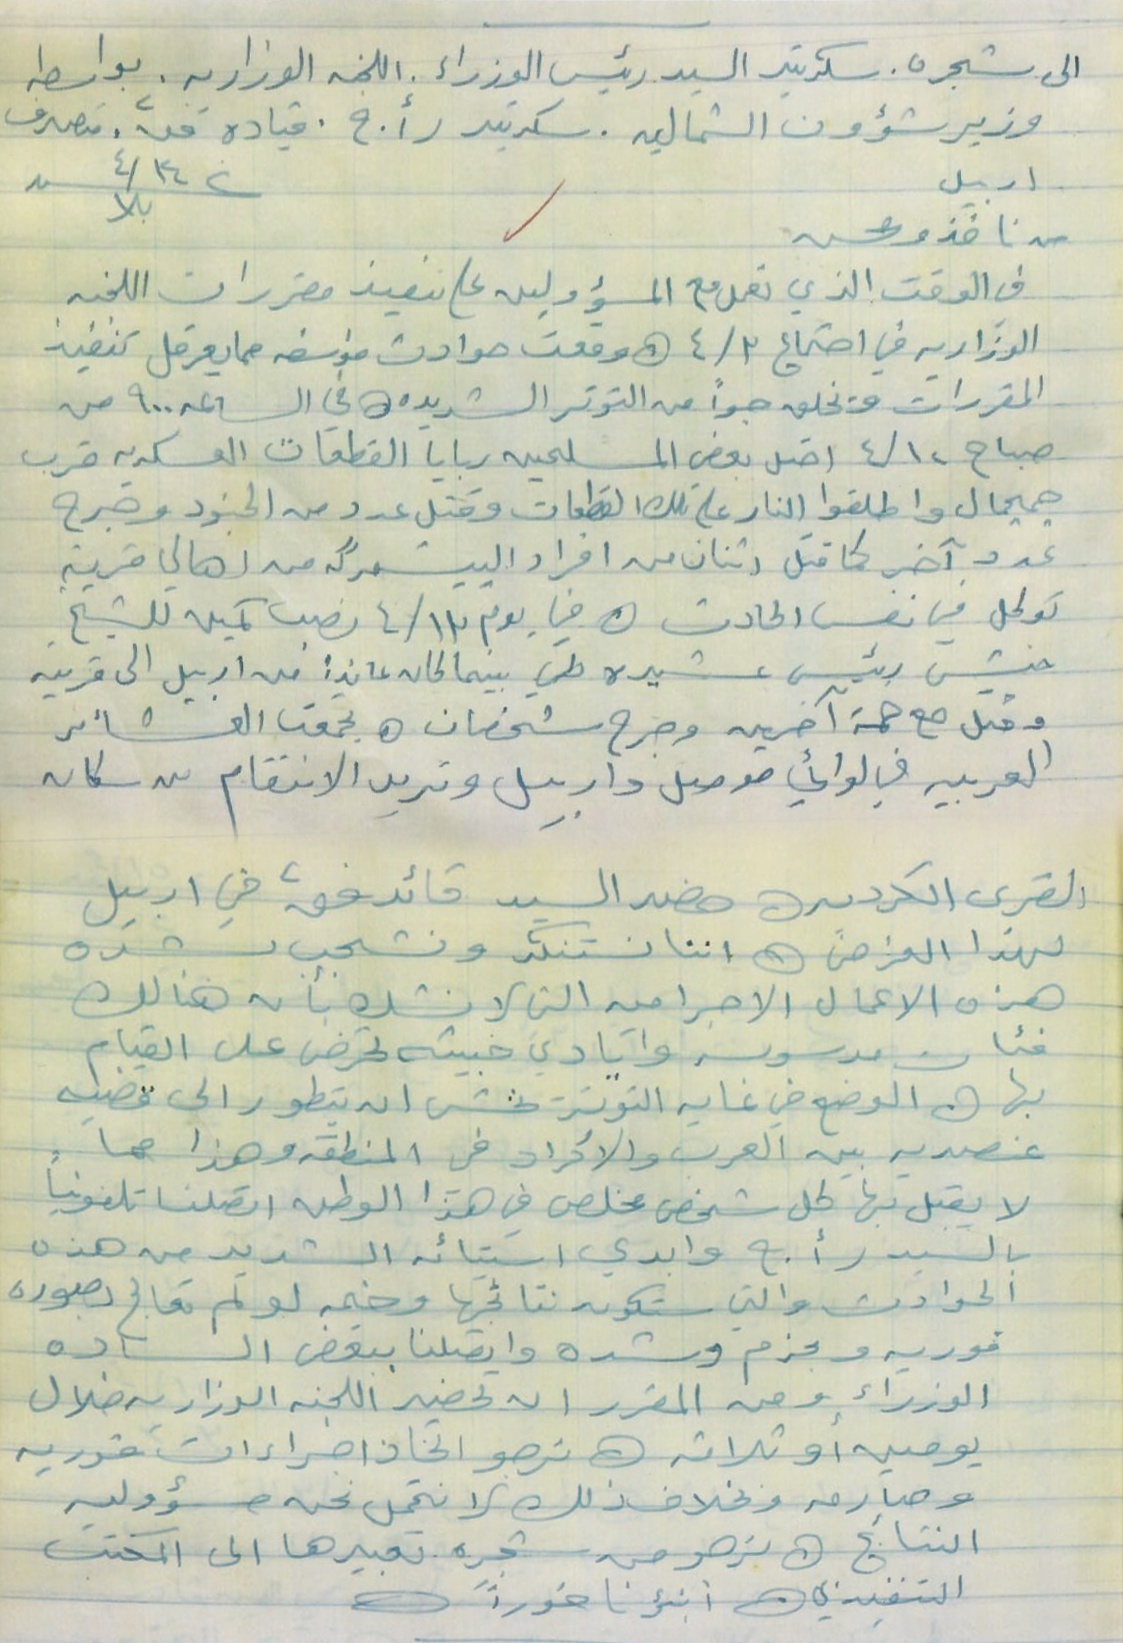 الى شجره . سكرتير السيد رئيس الوزراء . اللجنه الوزاريه . بواسطه
وزير شؤون الشماليه . سكرتير ر أ. ج . قيادة فق٢ . متصرف
اربيل
بلا
من نافذ و محسن
في الوقت الذي نعمل مع المسؤولين على تنفيذ مقررات اللجنه
الوزاريه في اجتماع ٤/٢ وقعت حوادث مؤسفه مما يعرقل تنفيذ
المقررات وتخلق جواً من التوتر الشديد في الساعه ٩٠٠ من
صباح ٤/١٠ احتل بعض المسلحين ربايا القطعات العسكريه قرب
جمجمال واطلقوا النار على تلك القطعات وقتل عدد من الجنود وجرح
عدد آخر كما قتل اثنان من افراد البيشمرگه من اهالي قرية
في نفس الحادث في يوم ٤/١٣ نصب كمين للشيخ
حنش رئيس عشيرة طي بينما كان عائداً من اربيل الى قريته
وقتل مع خمسة آخرين وجرح شخصان تجمعت العشائر
العربيه في لوائي موصل واربيل وتريد الانتقام من سكان
القرى الكرديه حضر السيد قائد فق٢ في اربيل
لهذا الغرض اننا نستنكر ونشجب بشده
هذه الاعمال الاجراميه التي لا نشك بأن هنالك
فئات مدسوسه وايادي خبيثه تحرض على القيام
بها الوضع في غاية التوتر نخشى ان يتطور الى قضيه
عنصريه بين العرب والاكراد في المنطقه وهذا مما
لا يقبل بها كل شخص مخلص في هذا الوطن اتصلنا تلفونياً
بالسيد ر أ. ج وابدى استيائه الشديد من هذه
الحوادث والتي ستكون نتائجها وخيمه لو لم تعالج بصوره
فوريه وبحزم وشده واتصلنا ببعض الساده
الوزراء ومن المقرر ان تحضر اللجنه الوزاريه خلال
يومين أو ثلاثه نرجو اتخاذ اجراءات فوريه
وصارمه وبخلاف ذلك لا نتحمل نحن مسؤولية
النتائج نرجو من شجره تعبيرها الى المكتب
التنفيذي انبؤنا فوراً